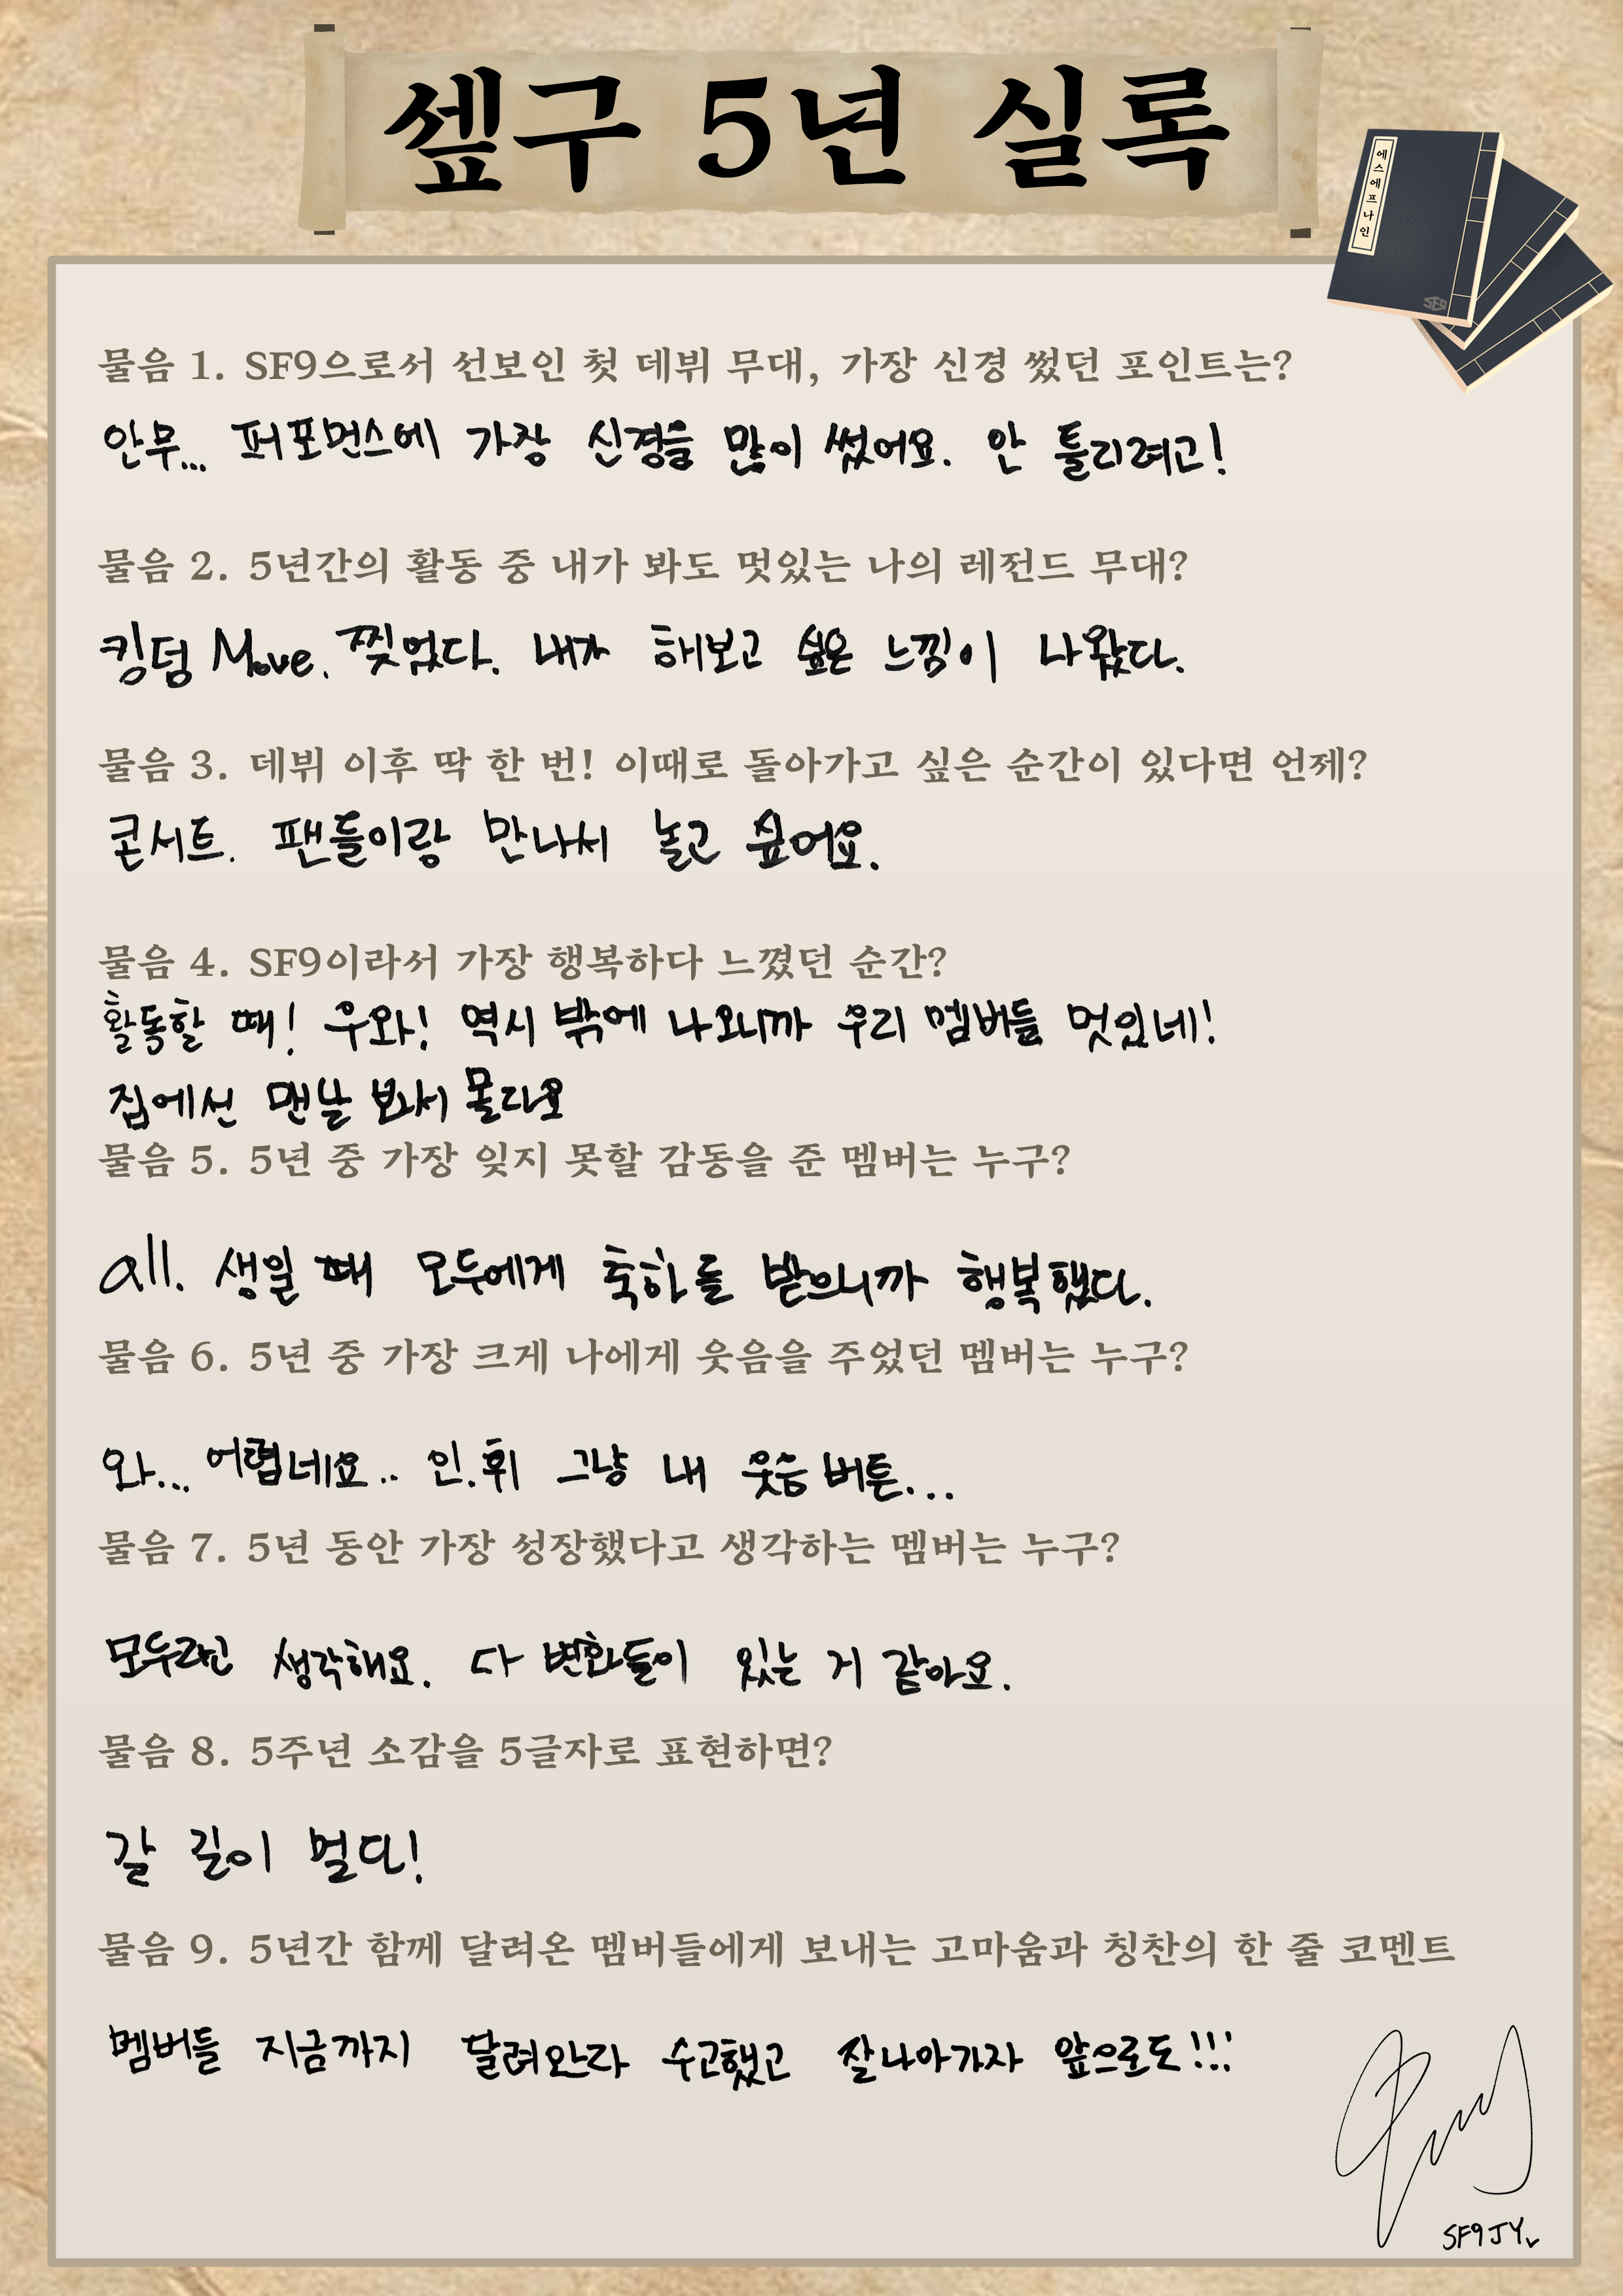 셒구 5년 실록
에스에프나인
SF9
물음 1. SF9으로서 선보인 첫 데뷔 무대, 가장 신경 썼던 포인트는?
안무... 퍼포먼스에 가장 신경을 많이 썼어요. 안 틀리려고!
물음 2. 5년간의 활동 중 내가 봐도 멋있는 나의 레전드 무대?
킹덤 Move. 찢었다. 내가 해보고 싶은 느낌이 나왔다.
물음 3. 데뷔 이후 딱 한 번! 이때로 돌아가고 싶은 순간이 있다면 언제?
콘서트. 팬들이랑 만나서 놀고 싶어요.
물음 4. SF9이라서 가장 행복하다 느꼈던 순간?
활동할 때! 우와! 역시 밖에 나오니까 우리 멤버들 멋있네!
집에선 맨날 봐서 몰라요
물음 5. 5년 중 가장 잊지 못할 감동을 준 멤버는 누구?
all. 생일 때 모두에게 축하를 받으니까 행복했다.
물음 6. 5년 중 가장 크게 나에게 웃음을 주었던 멤버는 누구?
와... 어렵네요.. 인.휘 그냥 내 웃음 버튼...
물음 7. 5년 동안 가장 성장했다고 생각하는 멤버는 누구?
모두라고 생각해요. 다 변화들이 있는 거 같아요.
물음 8. 5주년 소감을 5글자로 표현하면?
갈 길이 멀다!
물음 9. 5년간 함께 달려온 멤버들에게 보내는 고마움과 칭찬의 한 줄 코멘트
멤버들 지금까지 달려오느라 수고했고 잘 나아가자 앞으로도!!!
SF9 JY